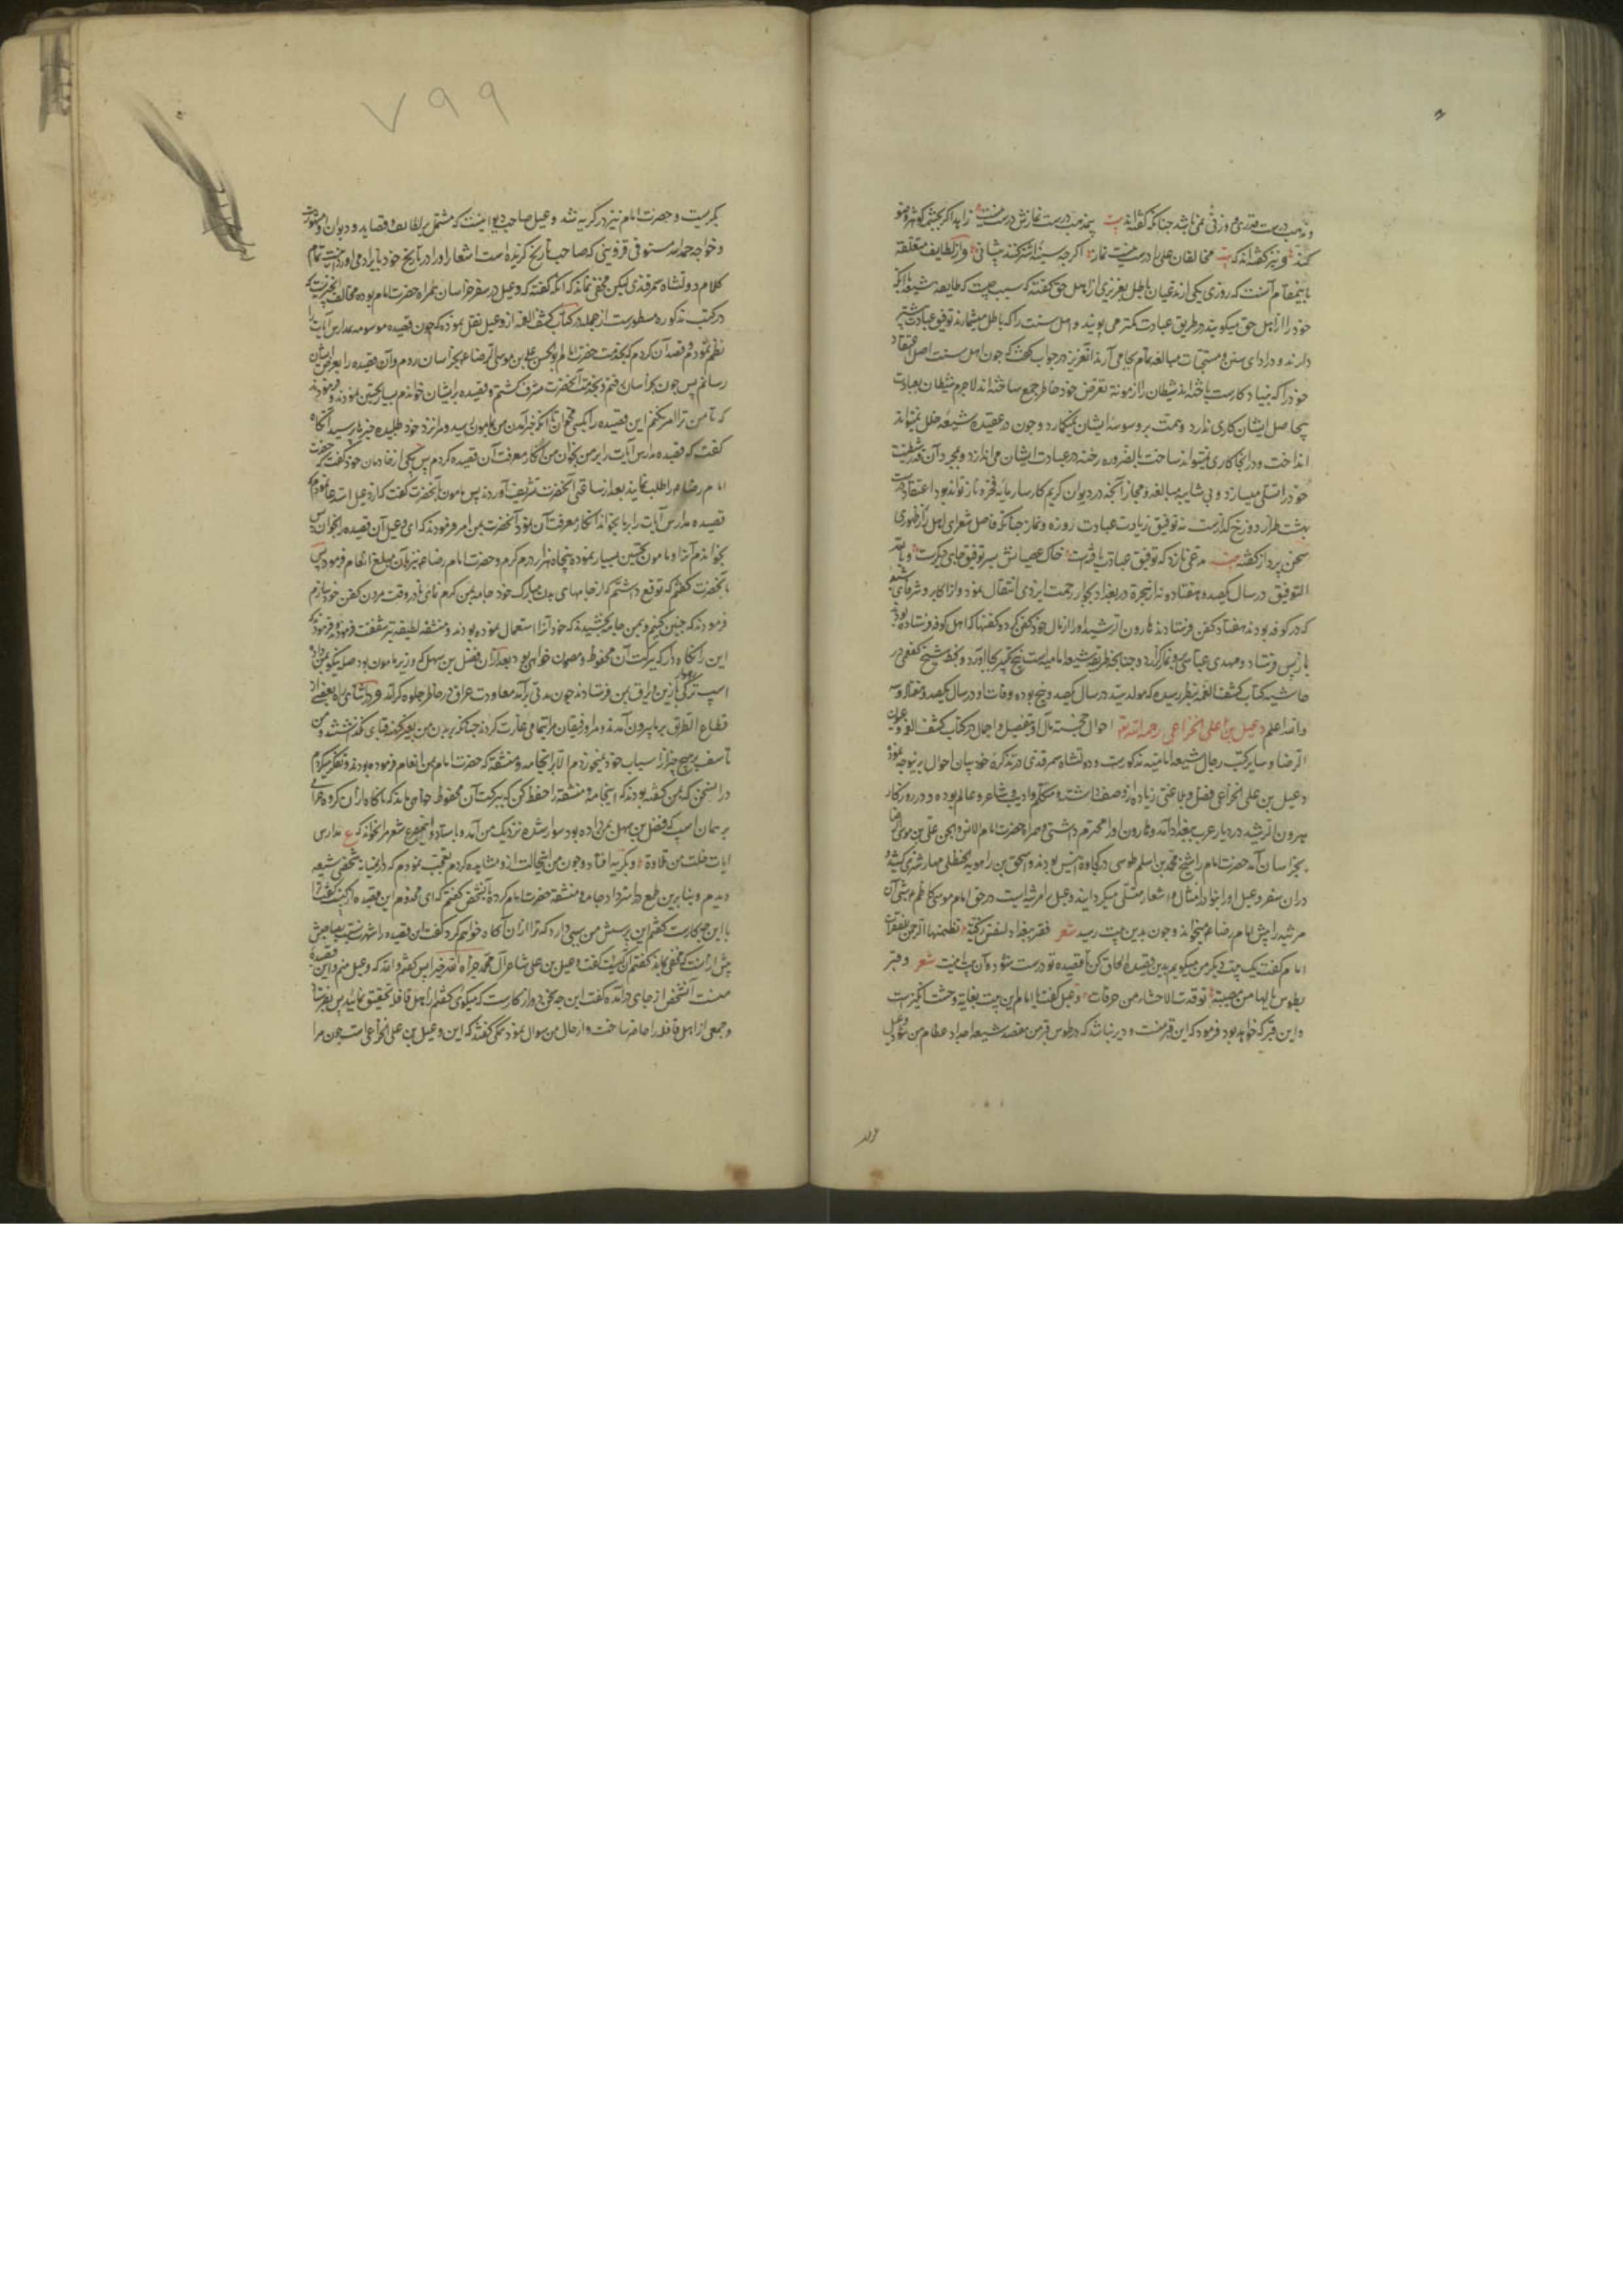 و مذهب درست قدری و وزنی نمی باشد چنانکه گفته اند بیت بیمذهب درست نمازش درست نیست زاهد اگر بچشمه کوثر وضو
کند و نیز گفته اند که بیت مخالفان علی را درست نیست نماز اگر چه سینه اشتر کنند پیشانی و از لطایف متعلقه
باینمقام آنست که روزی یکی از مدعیان باطل بعزیزی از اهل حق گفته که سبب چیست که طایفه شیعه با آنکه
خود را از اهل حق میگویند در طریق عبادت کمتر می پویند و اهل سنت را که باطل میشمارند توفیق عبادت بیشتر
دارند و در ادای سنن و مستحبات مبالغه تمام بجا می آرند آنعزیز در جواب گفت که چون اهل سنت اصل اعتقاد
خود را که بنیاد کارست باخته اند شیطان را از مونة تعرض خود خاطر جمع ساخته اند لاجرم شیطان بعبادت
بیحاصل ایشان کاری ندارد و همت بر وسوسه ایشان نمیگمارد و چون در عقیده شیعه خلل نمیتواند
انداخت و در آنجا کاری نمیتواند ساخت بالضروره رخنه در عبادت ایشان می اندازد و بمجرد آن قدر شیطنت
خود را تسلی میسازد و بی شایبه مبالغه و مجاز آنچه در دیوان کریم کارساز مایه فخر و ناز تواند بود اعتقاد درست
بهشت طراز دوزخ گدازست نه توفیق زیادت عبادت روزه و نماز چنانکه فاضل شعرای اهل راز ظهوری
سخن پرداز گفته بیت مدعی نازد که توفیق عبادت یافتست خاک عصیانش بسر توفیق جای دیگرست و بالله
التوفیق در سال یکصد و هفتاد و نه از هجرة در بغداد بجوار رحمت ایزدی انتقال نمود و از اکابر و شرفای شیعه
که در کوفه بودند هفتاد کفن فرستادند هارون الرشید او را از مال خود کفن کرد و کفنها که اهل کوفه فرستاده بودند
باز پس فرستاد و مهدی عباسی برو نماز گزارد و چنانچه طریقه شیعه امامیه است پنج تکبیر بجا آورد و بخط شیخ کفعمی در
حاشیه کتاب کشف الغمه بنظر رسیده که مولد سید در سال یکصد و پنج بوده و وفات او در سال یکصد و هفتاد و سه
والله اعلم دعبل بن علی الخزاعی رحمه الله تع احوال خجسته مآل او بتفصیل و اجمال در کتاب کشف الغمه و عیون
الرضا و سایر کتب رجال شیعه امامیه مذکورست و دولتشاه سمرقندی در تذکره خود بیان احوال برینوجه نموده
دعبل بن علی الخزاعی فضل و بلاغتی زیاده از وصف داشته و متکلم و ادیب و شاعر و عالم بوده و در روزگار
هرون الرشید در دیار عرب ببغداد آمد و هارون او را محترم داشتی و همراه حضرت امام الانس و الجن علی بن موسی الرضا
بخراسان آمد حضرت امام را شیخ محمد بن اسلم طوسی در کجاوه انیس بودند و اسحق بن راهویه الحنظلی مهار شتر می کشید و
در آن سفر دعبل او را بنوادر امثال و اشعار متسلی میگردانید و دعبل را مرثیه ایست در حق امام موسی کاظم ع روزی آن
مرثیه را پیش امام رضا ع میخواند و چون بدین بیت رسید شعر و قبر ببغداد لنفس زکیة تضمنها الرحمن فی الغرفات
امام گفت یک بیت دیگر من میگویم بدین قصیده الحاق کن تا قصیده تو درست شود و آن بیت اینست شعر و قبر
بطوس یا لها من مصیبة توقد بالاحشاء من حرقات دعبل گفت یا امام این بیت بغایة وحشت انگیزست
و این قبر که خواهد بود فرمود که این قبر منست و دیر نباشد که در طوس قبر من مقصد شیعه ... شود دعبل
بگریست و حضرت امام نیز در گریه شد و دعبل صاحب دیوانیست که مشتمل بر لطایف و قصاید و دیوان او مشهورست
و خواجه حمد الله مستوفی قزوینی که صاحب تاریخ گزیده است اشعار او را در تاریخ خود بایراد می آورد اینست تمام
کلام دولتشاه سمرقندی لیکن مخفی نماند که آنکه گفته که دعبل در سفر خراسان همراه حضرت امام بوده مخالف چیزیست که
در کتب مذکوره مسطورست از جمله در کتاب کشف الغمه از دعبل نقل نموده که چون قصیده موسومه بمدارس آیات را
نظم نمودم قصد آن کردم که بخدمت حضرت امام ابو الحسن علی بن موسی الرضا ع بخراسان روم و آن قصیده را بعرض ایشان
رسانم پس چون بخراسان رفتم و بخدمت آنحضرت مشرف گشتم و قصیده بر ایشان خواندم بسیار تحسین نمودند و فرمودند
که تا من ترا امر نکنم این قصیده را بکسی مخوان تا آنکه خبر آمدن من بمامون رسید و مرا نزد خود طلبیده خبر باز پرسید آنگاه
گفت که قصیده مدارس آیات را بر من بخوان من انکار معرفت آن قصیده کردم پس بیکی از خادمان خود گفت که حضرت
امام رضا ع را طلب نماید بعد از ساعتی آنحضرت تشریف آوردند پس مامون بآنحضرت گفت که از دعبل استدعا نمودم که
قصیده مدارس آیات را بر ما بخواند انکار معرفت آن نمود آنحضرت بمن امر فرمودند که ای دعبل آن قصیده را بخوان پس
بخواندم آنرا و مامون تحسین بسیار نموده پنجاه هزار درم کرم و حضرت امام رضا ع نیز بآن مبلغ انعام فرمود پس
بآنحضرت گفتم که توقع داشتم که از جامهای بدن مبارک خود جامه بمن کرم نمائی تا در وقت مردن کفن خود سازم
فرمودند که چنین کنیم و بمن جامه بخشیدند که خود آنرا استعمال نموده بودند و منشفه لطیفه نیز شفقت فرمودند و فرمود که
این را نگاه دار که ببرکت آن محفوظ و مصون خواهی بود بعد از آن فضل بن سهل که وزیر مامون بود صله نیکو بمن داد و
اسپ ترکی با زین و یراق بمن فرستادند چون مدتی برآمد معاودت عراق در خاطر جلوه گر آمد و در اثنای راه بعضی از
قطاع الطریق بر ما بیرون آمدند و مرا و رفیقان مرا بتمامی غارت کردند چنانکه بر بدن من بغیر کهنه قبای نگذاشتند و من
تاسف بر هیچ چیز از اسباب خود نمیخوردم الا بر آنجامه و منشفه که حضرت امام بمن انعام فرموده بودند و تفکر میکردم
در آن سخن که بمن گفته بودند که اینجامه و منشفه را حفظ کن که ببرکت آن محفوظ خواهی ماند که ناگاه از آن گروه حرامی
بر همان اسپ که فضل بن سهل بمن داده بود سوار شده نزدیک من آمد و باستاد و این مصرع شعر مرا بخواند که ع مدارس
آیات خلت من تلاوة و بگریه افتاد و چون من اینحالت ازو مشاهده کردم تعجب نمودم که در آنمیانه شخصی شیعه
دیدم و بنا برین طمع در استرداد جامه و منشفه حضرت امام کرده بآنشخص گفتم که ای مخدوم این قصیده از کیست گفت ترا
با این چه کارست گفتم این پرسش من سببی دارد که ترا از آن آگاه خواهم کرد گفت این قصیده را شهرت نسبت بصاحبش
بیش از آنست که مخفی بماند گفتم آن کیست گفت دعبل بن علی شاعر آل محمد جزاه الله خیرا پس گفتم والله که دعبل منم و این قصیده
منست آنشخص از جای درآمده گفت این چه سخن دور از کارست که میگوئی گفتم از اهل قافله تحقیق نمائید پس بفرستاد
و جمعی از اهل قافله را حاضر ساخت و از حال من سوال نمود همگی گفتند که این دعبل بن علی الخزاعی است چون مرا
۷۹۹